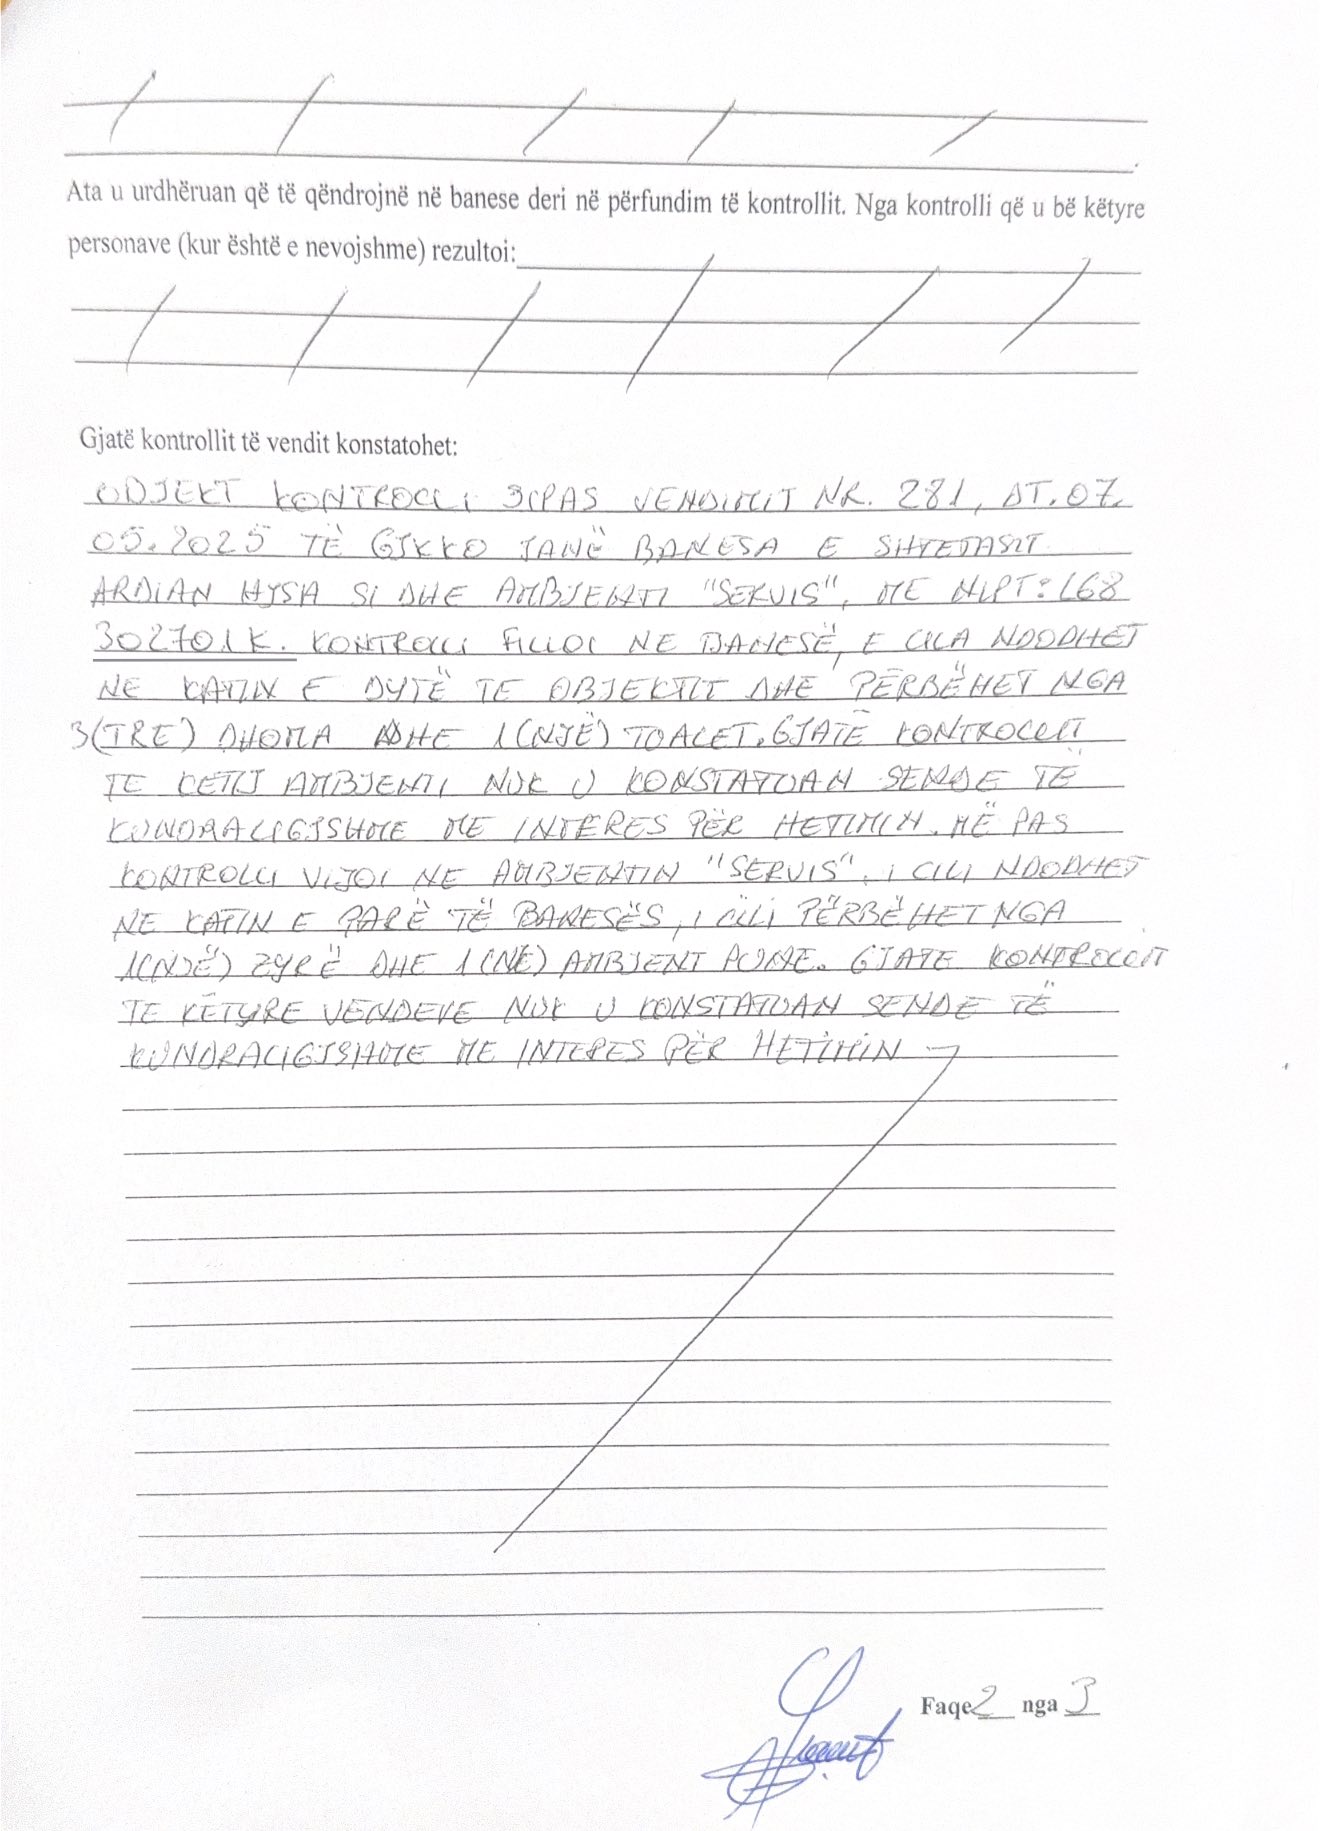 Ata u urdhëruan që të qëndrojnë në banese deri në përfundim të kontrollit. Nga kontrolli që u bë këtyre
personave (kur është e nevojshme) rezultoi:
Gjatë kontrollit të vendit konstatohet:
OBJEKT KONTROLLI SIPAS VENDIMIT NR. 281, DT. 07.
05.2025 TË GJKKO JANË BANESA E SHTETASIT
ARDIAN HYSA SI DHE AMBJENTI "SERVIS", ME NIPT: L68
302701K. KONTROLLI FILLOI NE BANESË, E CILA NDODHET
NE KATIN E DYTË TE OBJEKTIT DHE PËRBËHET NGA
3(TRE) DHOMA DHE 1(NJË) TOALET. GJATË KONTROLLIT
TE KETIJ AMBJENTI NUK U KONSTATUAN SENDE TË
KUNDRALIGJSHME ME INTERES PËR HETIMIN. MË PAS
KONTROLLI VIJOI NE AMBJENTIN "SERVIS", I CILI NDODHET
NE KATIN E PARË TË BANESËS, I CILI PËRBËHET NGA
1(NJË) ZYRË DHE 1(NË) AMBJENT PUNE. GJATE KONTROLLIT
TE KËTYRE VENDEVE NUK U KONSTATUAN SENDE TË
KUNDRALIGJSHME ME INTERES PËR HETIMIN
Faqe 2 nga 3